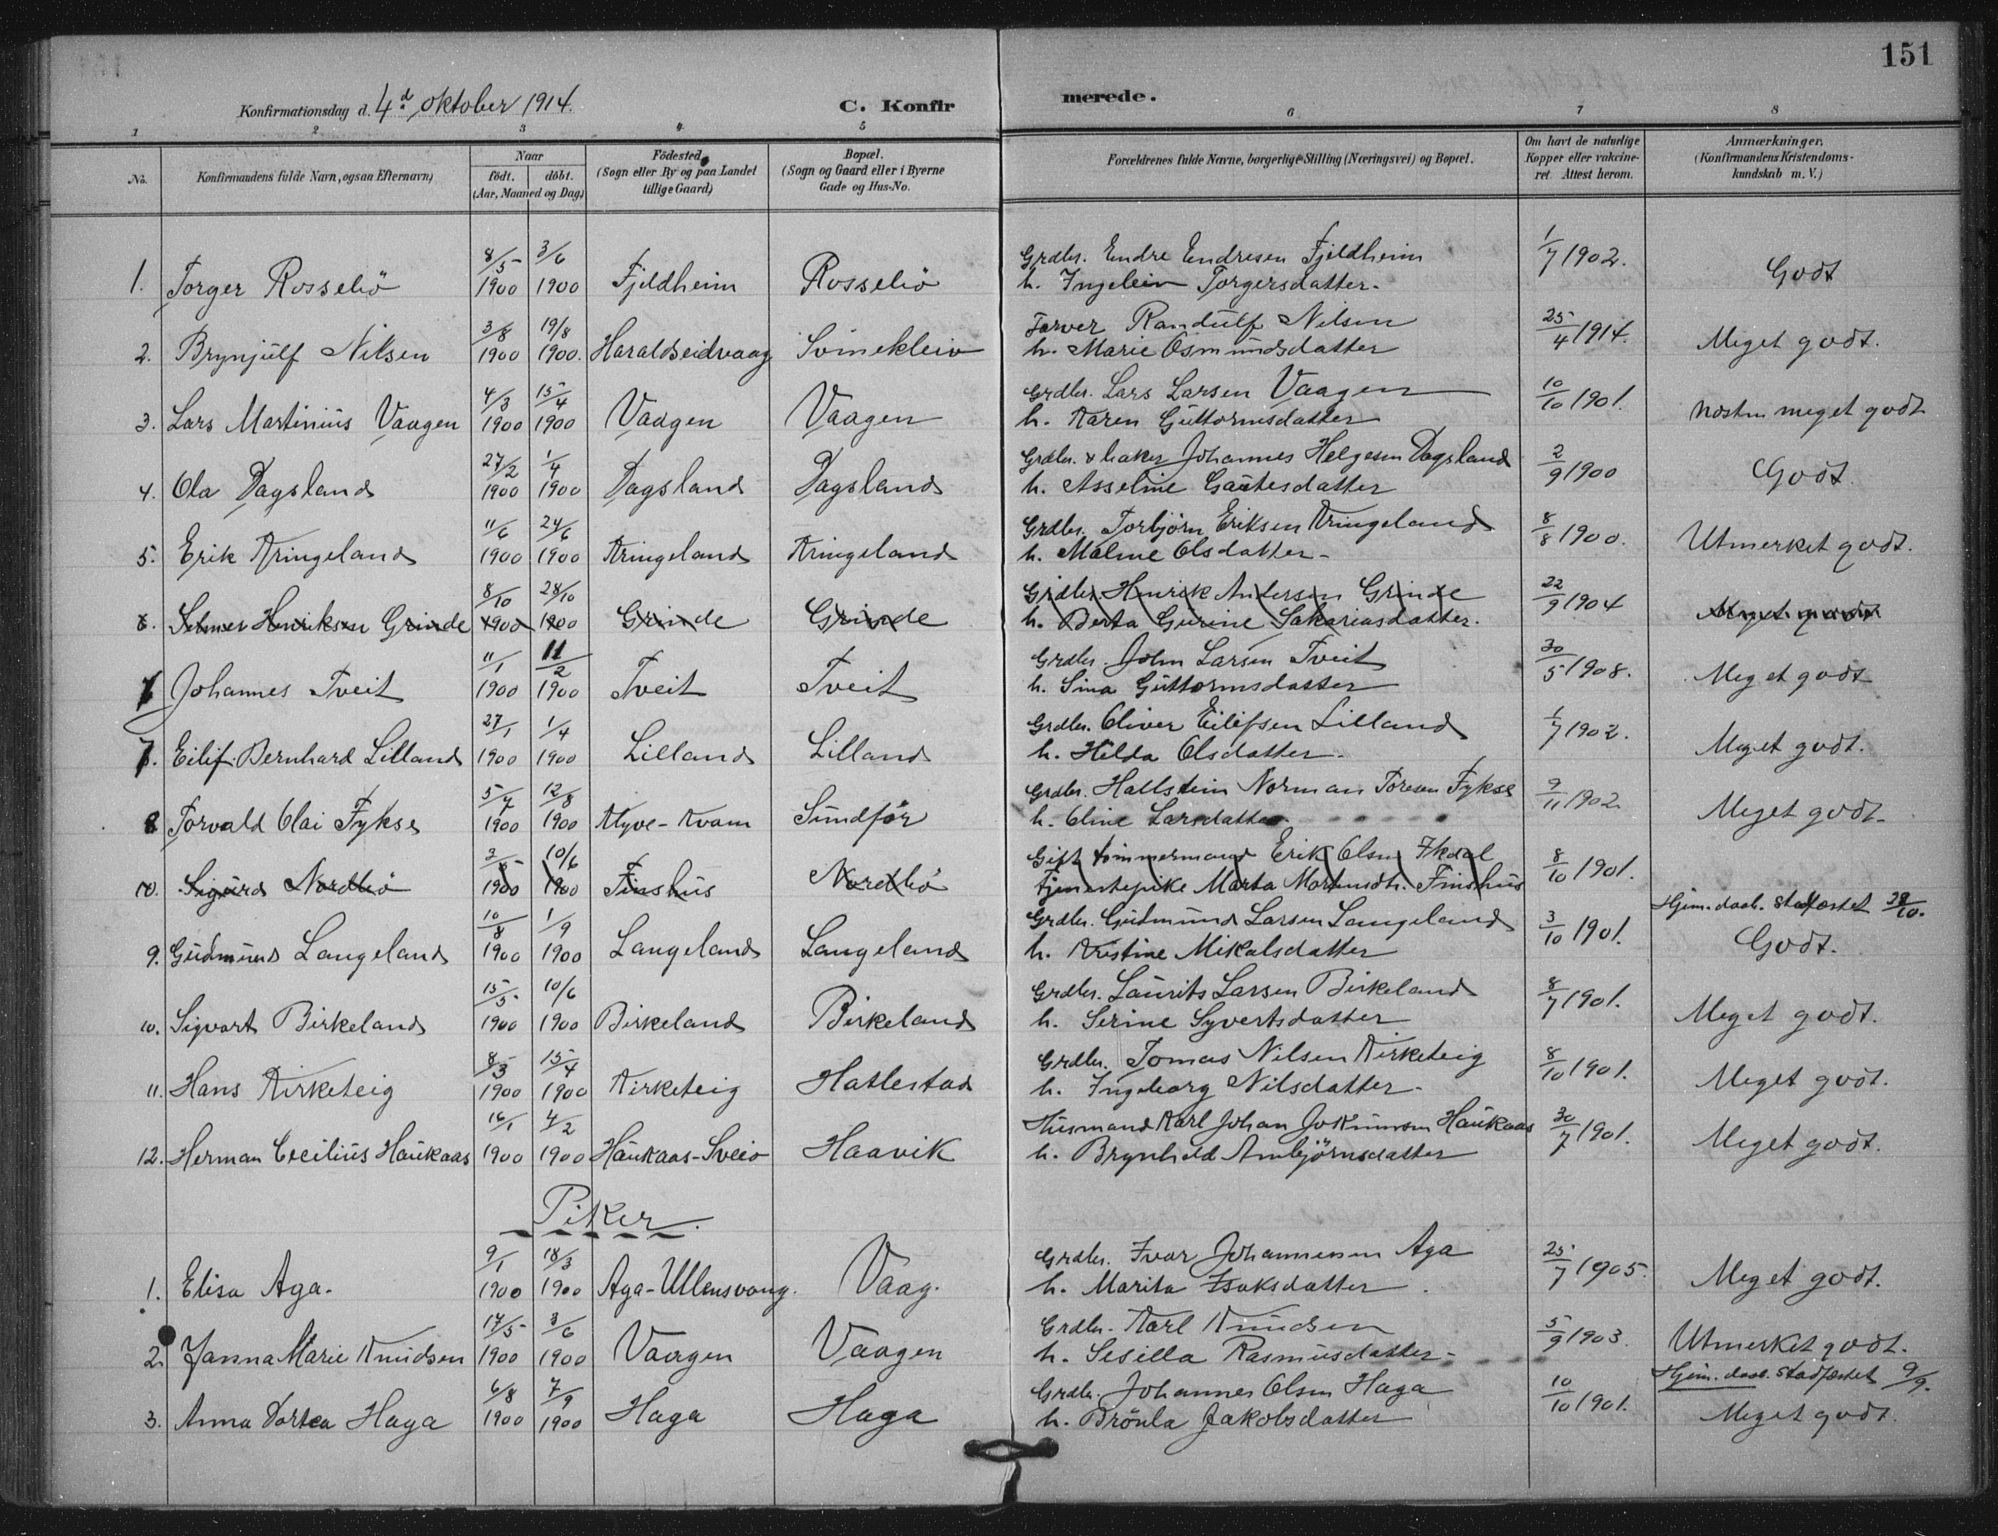 151
Konfirmationsdag d. 4d oktober 1914.
C. Konfirmerede.
1 2 3 4 5 6 7 8
No. Konfirmandens fulde Navn, ogsaa Efternavn) Naar födt. döbt. (Aar, Maaned og Dag) Födested, (Sogn eller By og paa Landet tillige Gaard) Bopæl. (Sogn og Gaard eller i Byerne Gade og Hus-No. Forældrenes fulde Navne, borgerlige Stilling (Næringsvei) og Bopæl. Om havt de naturlige Kopper eller vakcineret. Attest herom. Anmærkninger, (Konfirmandens Kristendomskundskab m. V.)
1. Torger Rossebö 8/5 1900 3/6 1900 Fjeldheim Rossebö Grdbr. Endre Endresen Fjeldheim 1/7 1902. Godt
h. Ingeleiv Torgersdatter.
2. Brynjulf Nilsen 3/8 1900 19/8 1900. Haraldseidvaag Svinekleiv Farver Randulf Nilsen 25/4 1914. Meget godt.
h. Marie Osmundsdatter
3. Lars Martinius Vaagen 4/3 1900 15/4 1900 Vaagen Vaagen Grdbr. Lars Larsen Vaagen 10/10 1901. Næsten meget godt
h. Karen Guttormsdatter
4. Ola Dagsland 27/2 1900 1/4 1900 Dagsland Dagsland Grdbr. & baker Johannes Helgesen Dagsland 2/9 1900 Godt.
h. Asseline Gautesdatter
5. Erik Kringeland 11/6 1900 24/6 1900 Kringeland Kringeland Grdbr. Torbjørn Eriksen Kringeland 8/8 1900. Utmerket godt.
h. Malene Olsdatter
6. Selmer Henriksen Grinde 8/10 1900 28/10 1900 Grinde Grinde Grdbr. Henrik Andersen Grinde 22/9 1904 Meget godt
h. Berta Gurine Sakariasdatter.
6 Johannes Tveit 11/1 1900 11/2 1900 Tveit Tveit Grdbr. John Larsen Tveit 30/5 1908. Meget godt
h. Sina Guttormsdatter
7. Eilif Bernhard Lilland 27/1 1900 1/4 1900 Lilland Lilland Grdbr. Oliver Eilifsen Lilland 1/7 1902. Meget godt.
h. Helda Olsdatter.
8 Torvald Olai Fykse 5/7 1900 12/8 1900 Klyve-Kvam Sundför Grdbr. Hallstein Norman Toresen Fykse 9/11 1902 Meget godt.
h. Oline Larsdatter
10. Sigurd Nordbö 3/5 1900 10/6 1900 Finshus Nordbö Gift tømmermand Erik Olsen 8/10 1901.
Tjenestepike Marta Mortensdtr. Finshus
Hjem.daab. stadfæstet 28/10.
9. Gudmund Langeland 10/8 1900 1/9 1900 Langeland Langeland Grdbr. Gudmund Larsen Langeland 3/10 1901. Godt.
h. Kristine Mikalsdatter
10. Sigvart Birkeland 15/5 1900 10/6 1900 Birkeland Birkeland Grdbr. Laurits Larsen Birkeland 8/7 1901. Meget godt.
h. Serine Syvertsdatter
11. Hans Kirketeig 8/3 1900 15/4 1900 Kirketeig Hatlestad Grdbr. Tomas Nilsen Kirketeig 8/10 1901. Meget godt.
h. Ingeborg Nilsdatter.
12. Herman Cecilius Haukaas 16/1 1900 4/2 1900 Haukaas-Sveio Haavik Husmand Karl Johan Haukaas 30/7 1901. Meget godt.
h. Brynhild Ambjörnsdatter
Piker.
1. Elisa Aga. 9/1 1900 18/3 1900 Aga-Ullensvang. Vaag. Grdbr. Ivar Johannesen Aga 25/7 1905. Meget godt.
h. Marita Isaksdatter
2. Janna Marie Knudsen 17/5 1900 3/6 1900 Vaagen Vaagen Grdbr. Karl Knudsen 5/9 1903. Utmerket godt.
h. Sesilla Rasmusdatter
Hjem. daab. stadfæstet 9/9.
3. Anna Dortea Haga 6/8 1900 7/9 1900 Haga Haga Grdbr. Johannes Olsen Haga 10/10 1901. Meget godt.
h. Brönla Jakobsdatter